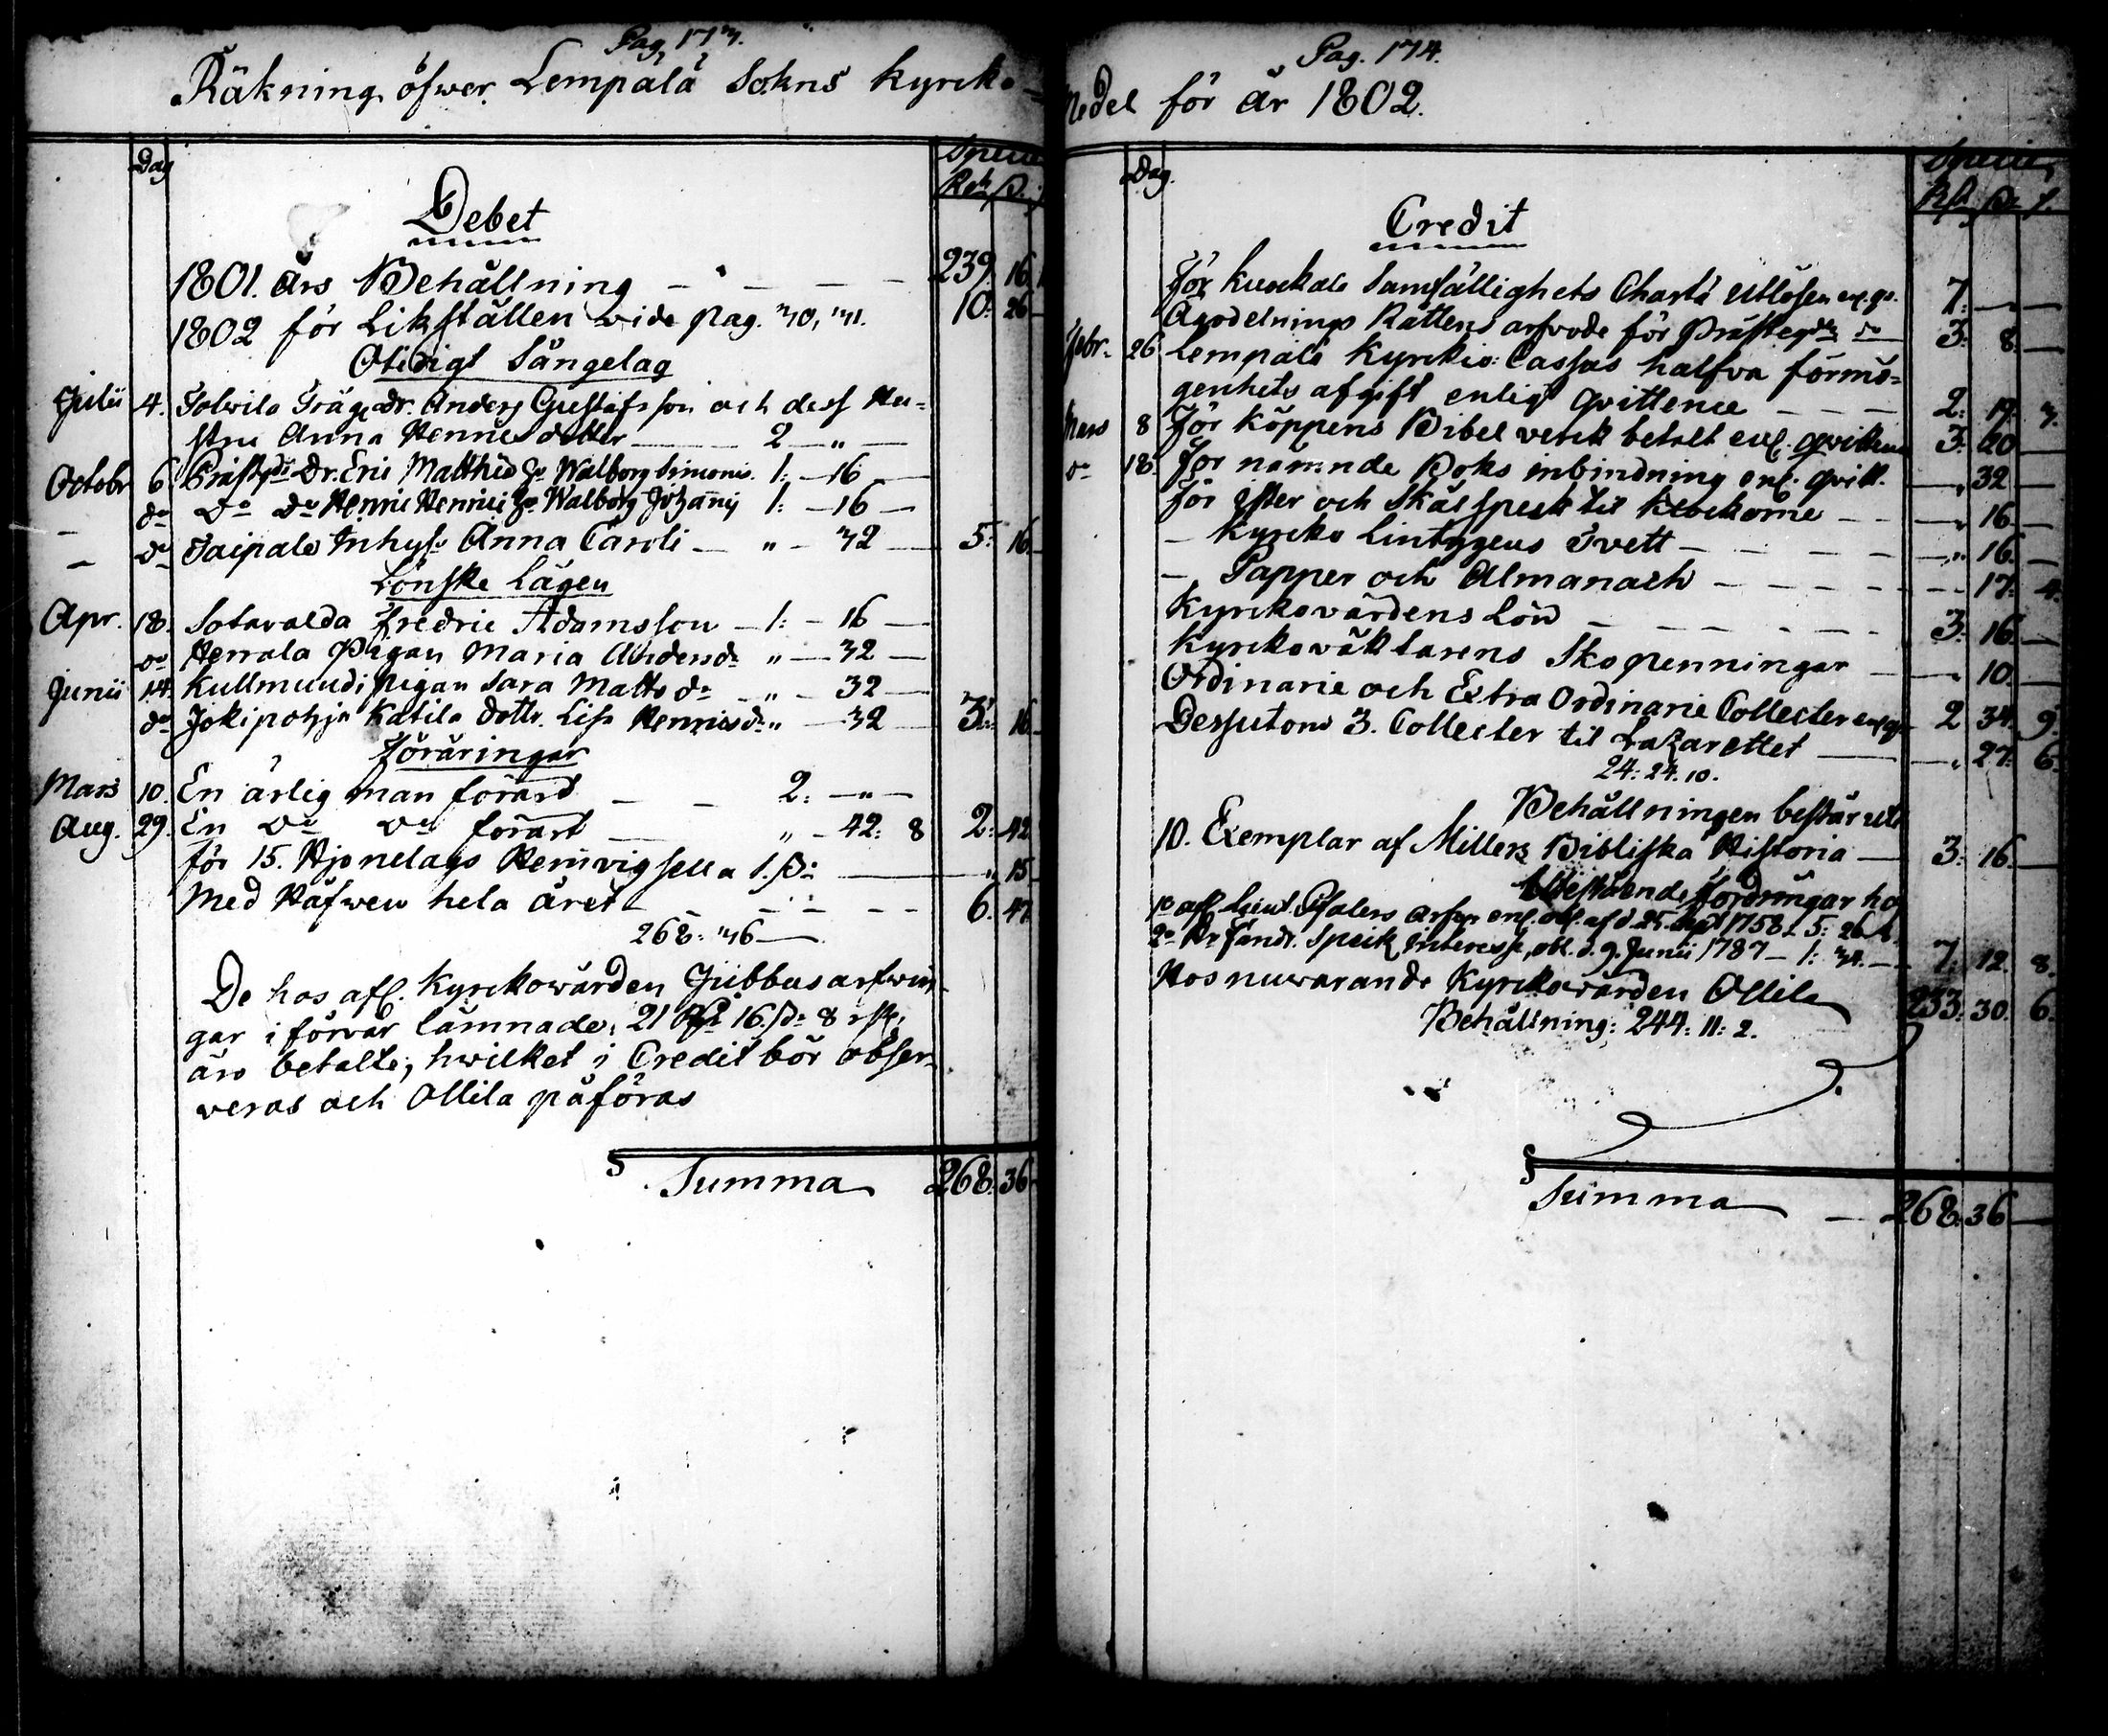 Pag. 173.
Räkning öfwer Lempälä Sokns kyrko-
Dag
Specie
Debet
1801. års Behållning — — — — 239. 16
1802 för Likställen vide pag. 30, 31. 10: 26
Otidigt Sängelag
Julii 4. Tolvila Dr. Anders Gustafsson och dess Hu-
stru Anna Henricsdotter — 2 — " —
Octobr 6 Dr. Eric Matthiæ Walborg Simonis. 1: — 16 —
do do do Henric Henrici Walborg Johannis 1: — 16 —
do Taipale Inhys Anna Caroli — " — 32 — 5: 16
Lönske Lägen
Apr. 18. Sotavalda Fredric Adamsson — 1: — 16 —
do Herrala Pigan Maria Andersdr " — 32 —
Junii 14. Kullmundi pigan Sara Mattsdr — " — 32
do Jokipohja Katila dottr. Lisa Henricsdr " — 32 — 3: 16
Föräringar
Mars 10. En ärlig man förärd — — 2: — " —
Aug. 29. En do do förärt — " — 42: 8 2: 42
för 15. Hjonelags Hemvigsell a 1. ß: — " 15
Med Håfwen hela året — — — — 6. 47
268: 36 —
De hos afl. Kyrkowärden Gubbus arfwin-
gar i förvar lämnade, 21 Rd 16. ß: 8 rst,
äro betalte, hwilket i Credit bör obser-
veras och Ollila påföras
Summa 268. 36
Pag. 174.
Medel för år 1802.
Dag.
Specie
Credit
För Kuokala Samfällighets Charta utlösen 7: — —
Ägodelnings Rättens arfvode för do 3: 8. —
Febr. 26 Lempälä Kyrkio Cassas halfva förmö-
genhets afgift enligt qvittence — — — 2: 19. 3.
Mars 8 För Köppens Bibel verck betalt enl. qvittence 3: 20 —
do 18. för nämnde Boks inbindning enl. qvitt. — " 32 —
För ister och Skälspeck til Klockorne — — " 16 —
— Kyrko Lintygens tvett — — — — " 16. —
— Papper och Almanach — — — — 17: 4.
Kyrkovärdens Lön — — — — 3: 16. —
Kyrkoväktarens Skopenningar — — " 10. —
Ordinarie och Extra Ordinarie Collecter 2 34. 9.
Dessutom 3. Collecter til Lazarettet — — " 27: 6.
24: 24. 10.
Behållningen består uti
10. Exemplar af Millers Bibliska Historia — 3: 16. —
Utestående fordringar hos
1o afl. Lieut. enl. obl. af d. 25. 1758 — 5: 26.
2o Hr Fändr. Speik, interesse, obl. d. 9. Junii 1787 — 1: 34. — 7: 12. 8.
Hos nuvarande Kyrkowärden Ollila 233. 30. 6.
Behållning: 244: 11: 2.
Summa — 268. 36 —